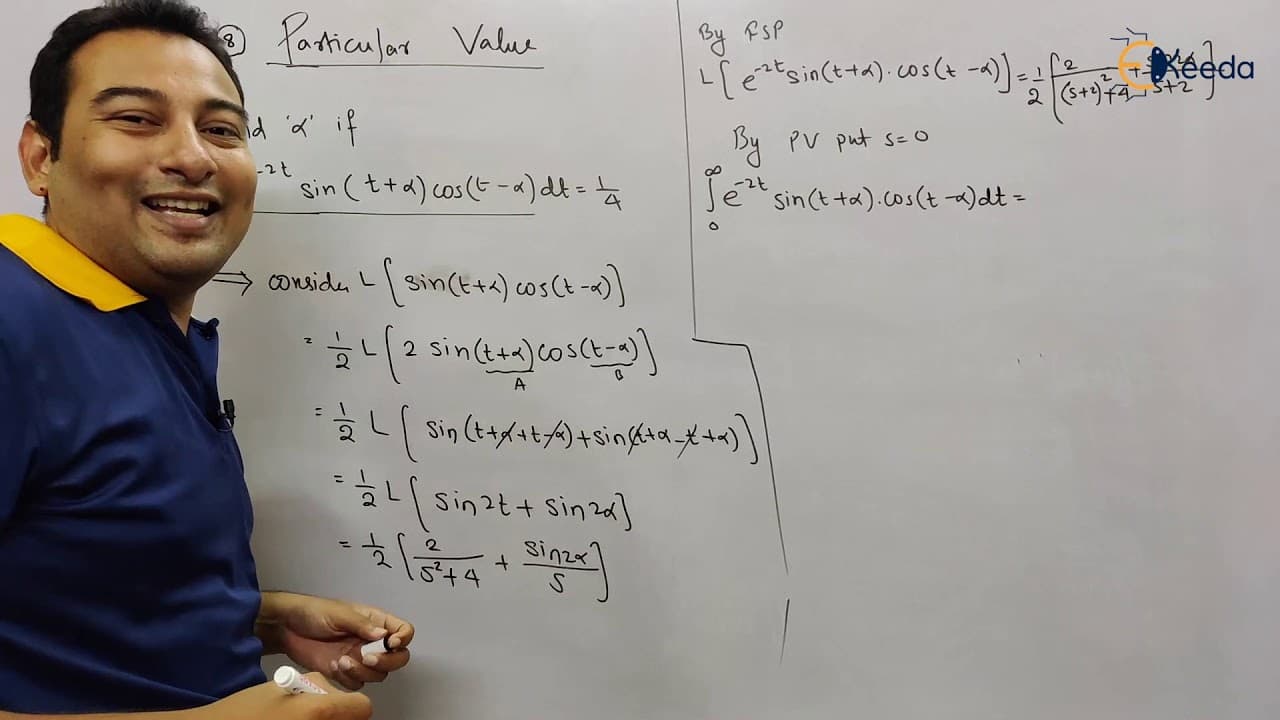 ⑧ Particular Value
'α' if
-2t sin(t+α) cos(t-α) dt = 1/4
⇒ consider L[sin(t+α) cos(t-α)]
= 1/2 L[2 sin(t+α) cos(t-α)]
A B
= 1/2 L[sin(t+α+t-α)+sin(t+α-t+α)]
= 1/2 L[sin2t + sin2α]
= 1/2 [2/(s²+4) + sin2α/s]
By FSP
L[e^-2t sin(t+α).cos(t-α)] = 1/2 [2/((s+2)²+4) + /s+2]
Ekeeda
By PV put s=0
∫₀^∞ e^-2t sin(t+α).cos(t-α)dt =